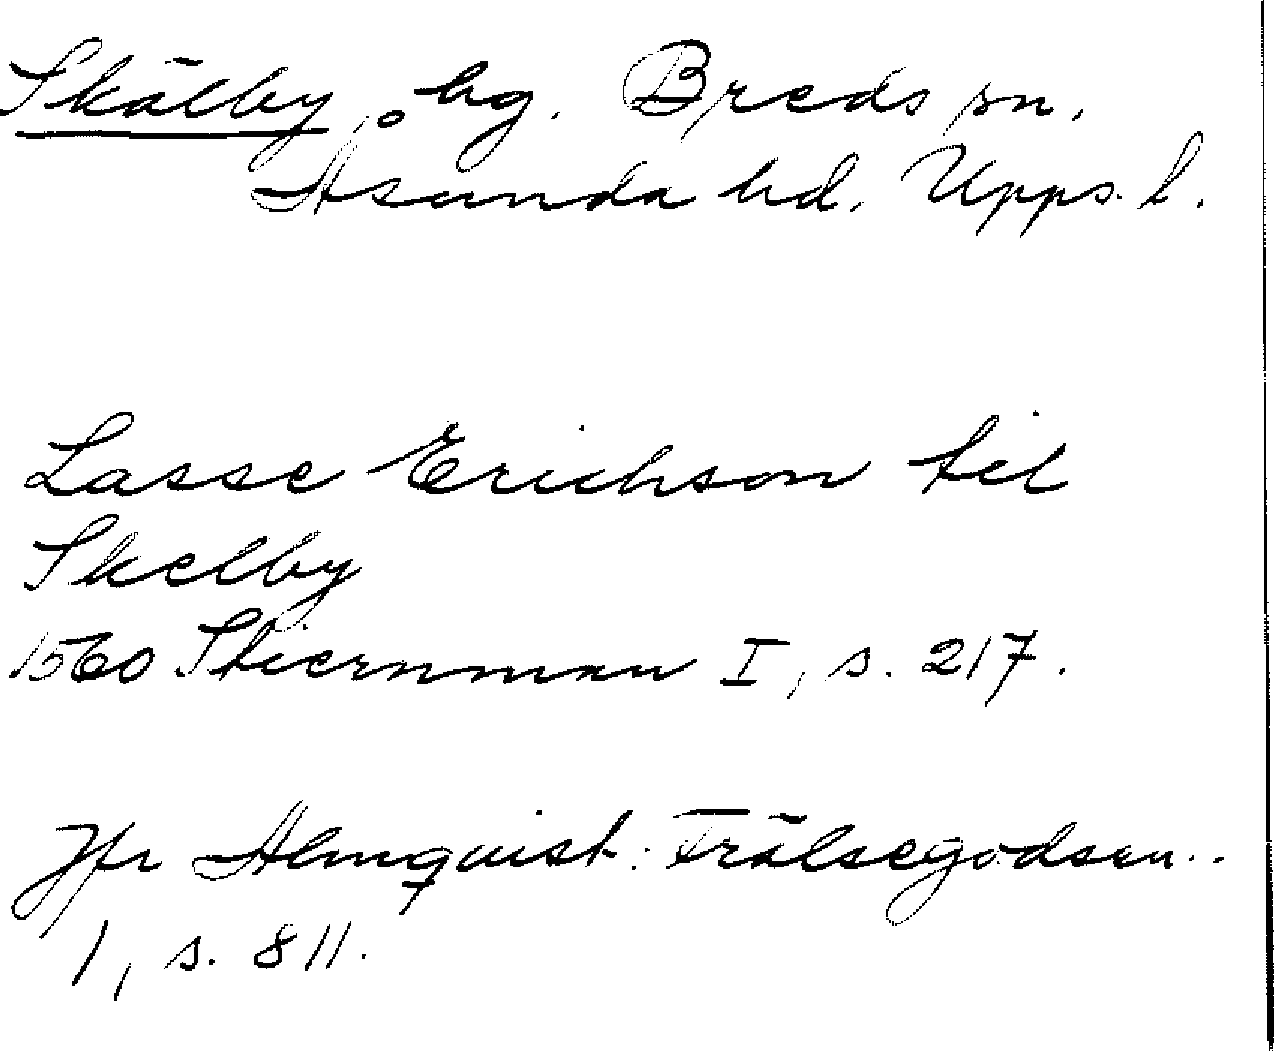 Skälby, hg. Breds sn,
Åsunda hd. Upps. l.
Lasse Erichson til
Skelby
1560 Stiernman I, s. 217.
Jfr Almquist: Frälsegodsen..
1, s. 811.